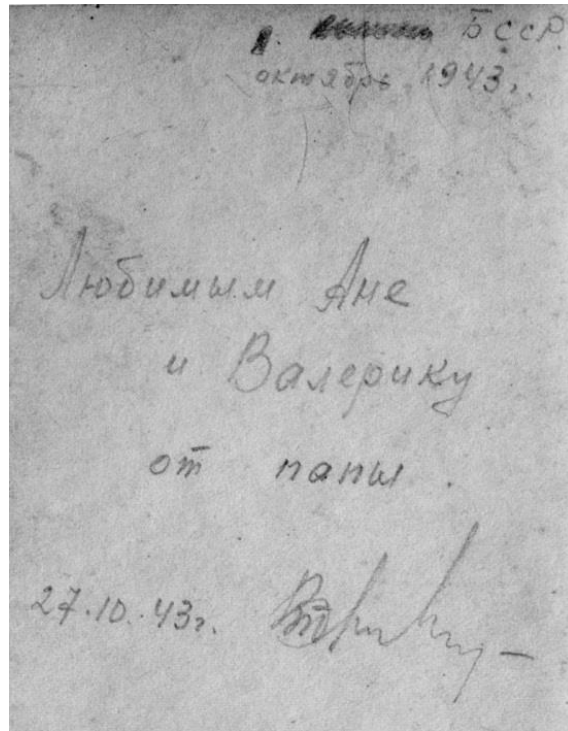 БССР.
октябрь 1943г.
Любимым Ане
и Валерику
от папы.
27.10.43г.